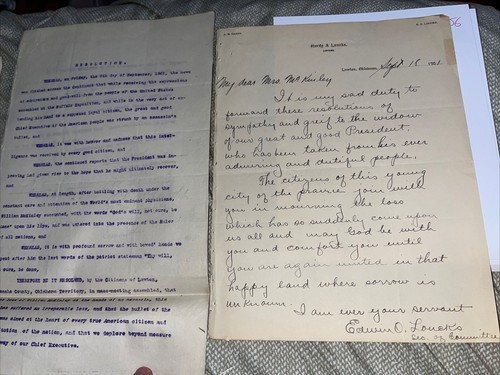 RESOLUTION.
WHEREAS, on Friday, the 6th day of September, 1901, the news
was flashed across our Continent that while receiving the expressions
of admiration and good-will from the people of the United States
at the Buffalo Exposition, and while in the very act of
ing his hand to a supposed loyal citizen, the great and good
Chief Executive of the American people was struck by an assassin's
bullet, and
WHEREAS, it was with horror and sadness that this intel-
ligence was received by every good citizen, and
WHEREAS, the continued reports that the President was im-
proving had given rise to the hope that he might ultimately recover,
and
WHEREAS, at length, after battling with death under the
constant care and attention of the World's most eminent Physicians,
William McKinley succumbed, with the words "God's will, not ours, be
done" upon his lips, and was ushered into the presence of the Ruler
of all nations, and
WHEREAS, it is with profound sorrow and with bowed heads we
repeat after him the last words of the patriot statesman "Thy will,
not ours, be done,
THEREFORE BE IT RESOLVED, by the Citizens of Lawton,
Comanche County, Oklahoma Territory, in mass-meeting assembled, that
in the death of
has suffered an irreparable loss, and that the bullet of the
was aimed at the heart of every true American citizen and
of the nation, and that we deplore beyond measure
way of our Chief Executive.
Hardy & Loucks,
LAWYERS
Lawton, Oklahoma, Sept 18 1901.
My dear Mrs. McKinley
It is my sad duty to
forward these resolutions of
sympathy and grief to the widow
of our great and good President,
who has been taken from his ever
admiring and dutiful people.
The citizens of this young
city of the prairie join with
you in mourning the loss
which has so suddenly come upon
us all and may God be with
you and comfort you until
you are again united in that
happy land where sorrow is
unknown.
I am ever your servant
Edwin O. Loucks
Sec. of Committee